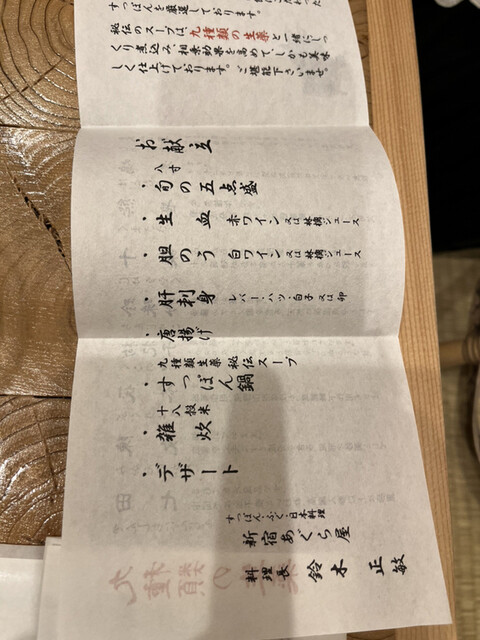 すっぽんを厳選しております。
秘伝のスープは、九種類の生薬と一緒にじっ
くり煮込み、相乗効果を高めて、しかも美味
しく仕上げております。ご堪能下さいませ。
お献立
八寸
・旬の五点盛
・生血 赤ワイン又は林檎ジュース
・胆のう 白ワイン又は林檎ジュース
・肝刺身 レバー・ハツ・白子又は卵
・唐揚げ
九種類生薬秘伝スープ
・すっぽん鍋
十八穀米
・雑炊
・デザート
すっぽん・ふぐ・日本料理
新宿あぐら屋
料理長 鈴木 正敏